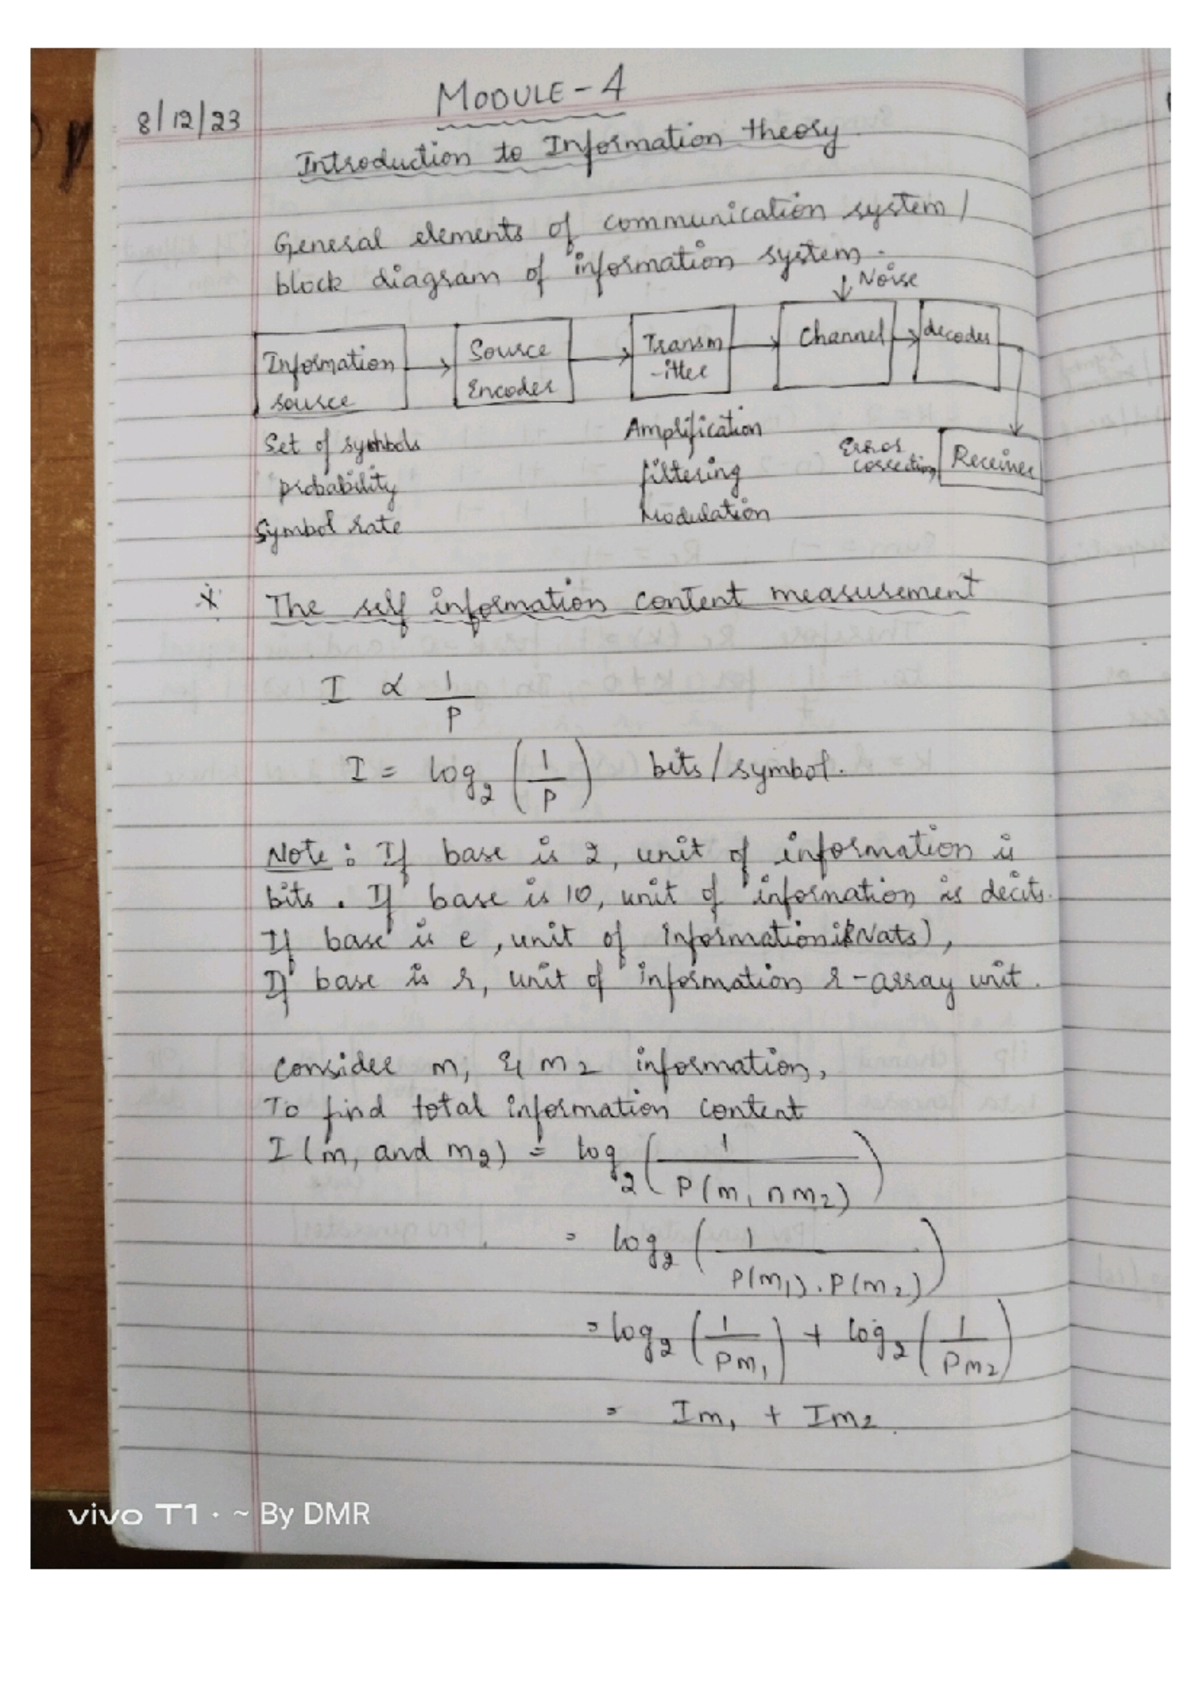 8/12/23
MODULE-4
Introduction to Information theory.
General elements of communication system /
block diagram of information system.
↓ Noise
Information source
Source Encoder
Transm-itter
Channel
decoder
Set of symbols
probability
Symbol rate
Amplification
filtering
Modulation
Error correction
Receiver
* The self information content measurement
I ∝ 1/P
I = log₂ (1/P) bits/symbol.
Note: If base is 2, unit of information is
bits. If base is 10, unit of information is decits.
If base is e, unit of information is (Nats),
If base is r, unit of information r-array unit.
Consider m₁ & m₂ information,
To find total information content
I(m₁ and m₂) = log₂ (1/P(m₁ ∩ m₂))
= log₂ (1/P(m₁).P(m₂))
= log₂ (1/Pm₁) + log₂ (1/Pm₂)
= Im₁ + Im₂.
vivo T1 · ~ By DMR